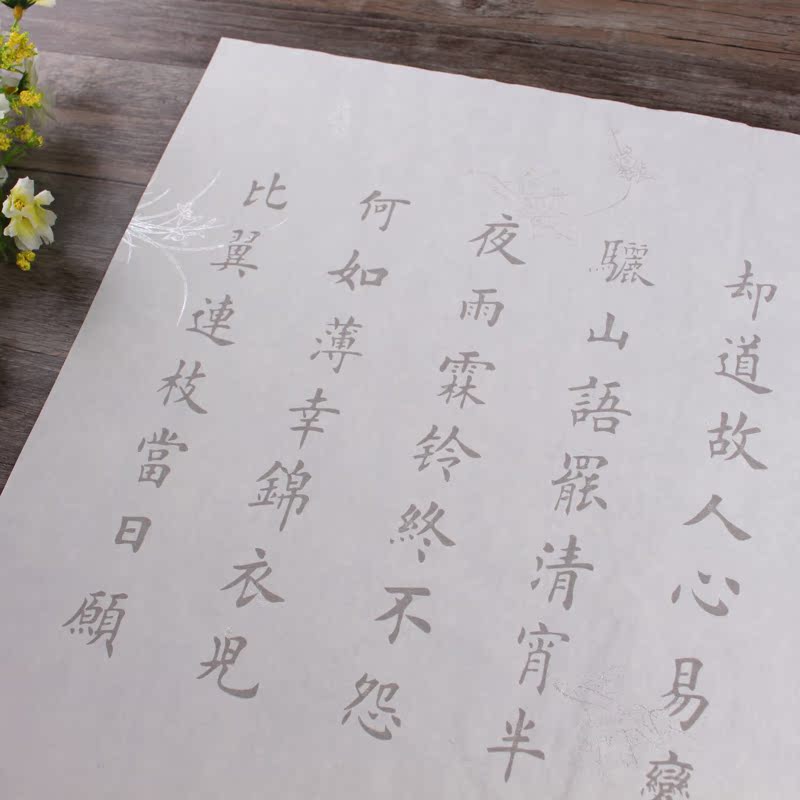 却道故人心易變
驪山語罷清宵半
夜雨霖铃終不怨
何如薄幸錦衣兒
比翼連枝當日願